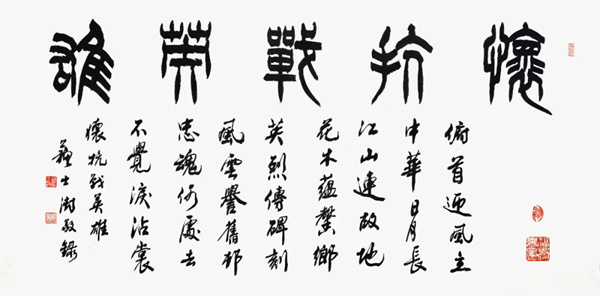 懷抗戰英雄
俯首迎風立
中華日月長
江山連故地
花木蘊馨鄉
英烈傳碑刻
風雲譽舊邦
忠魂何處去
不覺淚沾裳
懷抗战英雄
蘇士澍敬錄